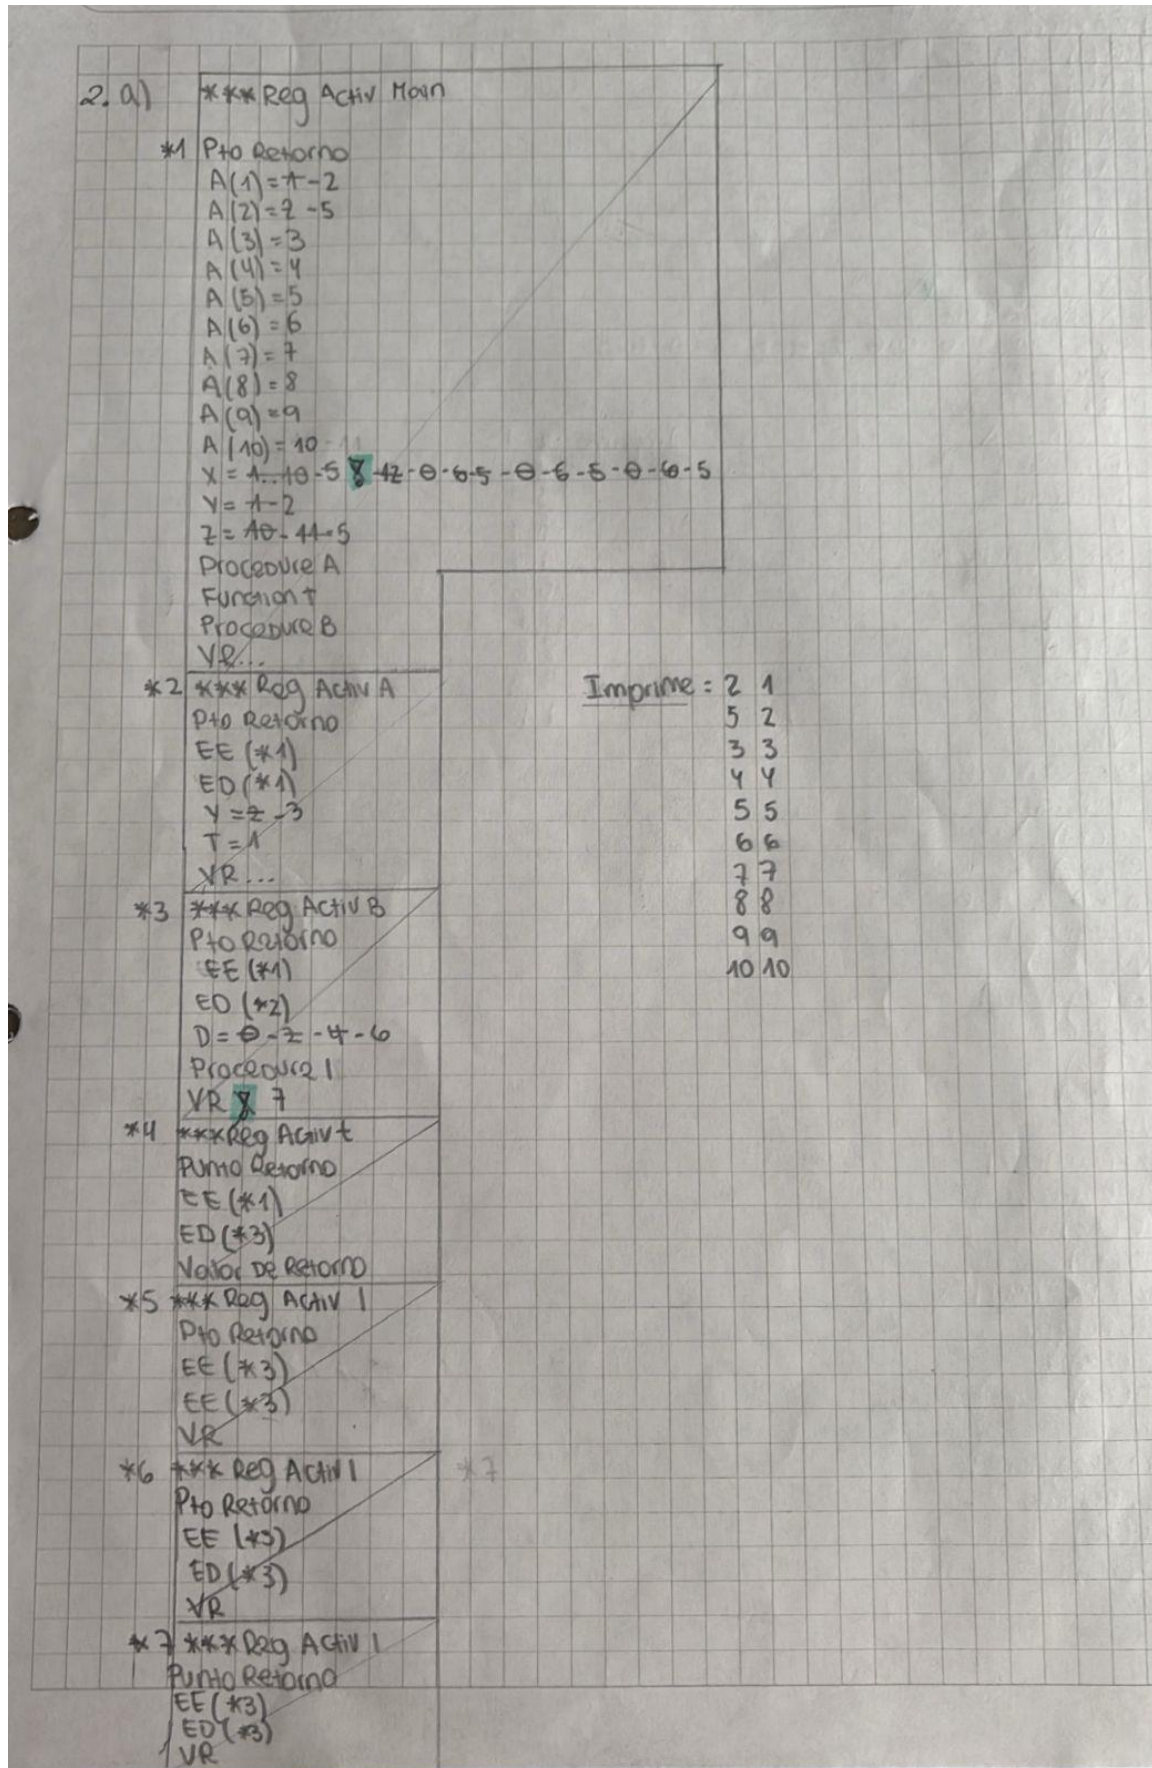 2. a) *** Reg Activ Main
*1 Pto Retorno
A(1) = 1 - 2
A(2) = 2 - 5
A(3) = 3
A(4) = 4
A(5) = 5
A(6) = 6
A(7) = 7
A(8) = 8
A(9) = 9
A(10) = 10
X = 1...10 - 5 8 - 12 - 0 - 6 - 5 - 0 - 6 - 5 - 0 - 6 - 5
Y = 1 - 2
Z = 10 - 11 - 5
Procedure A
Function t
Procedure B
VR...
*2 *** Reg Activ A
Pto Retorno
EE (*1)
ED (*1)
Y = 2 - 3
T = 1
VR...
*3 *** Reg Activ B
Pto Retorno
EE (*1)
ED (*2)
D = 0 - 2 - 4 - 6
Procedure I
VR 8 7
*4 *** Reg Activ t
Punto Retorno
EE (*1)
ED (*3)
Valor De Retorno
*5 *** Reg Activ I
Pto Retorno
EE (*3)
EE (*3)
VR
*6 *** Reg Activ I *7
Pto Retorno
EE (*3)
ED (*3)
VR
*7 *** Reg Activ I
Punto Retorno
EE (*3)
ED (*3)
VR
Imprime = 2 1
5 2
3 3
4 4
5 5
6 6
7 7
8 8
9 9
10 10